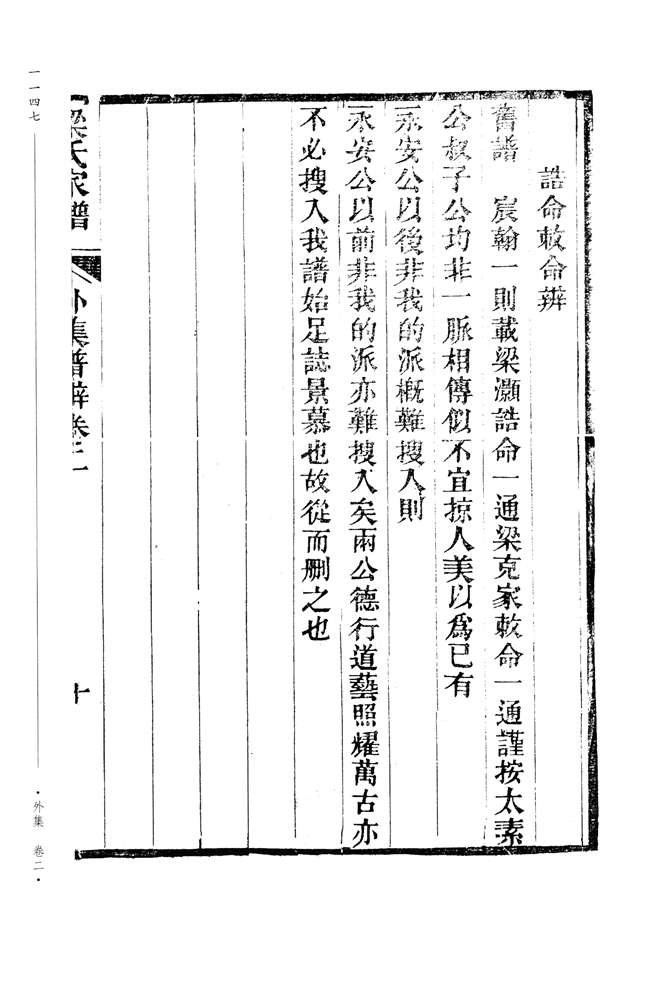 誥命敕命辨
舊譜　宸翰一則載梁灝誥命一通梁克家敕命一通謹按太素
公叔子公均非一脈相傳似不宜掠人美以爲已有
永安公以後非我的派概難搜入則
永安公以前非我的派亦難搜入矣兩公德行道藝照耀萬古亦
不必搜入我譜始足誌景慕也故從而刪之也
梁氏家譜　外集譜辨卷二　十
一一四七
·外集　卷二·